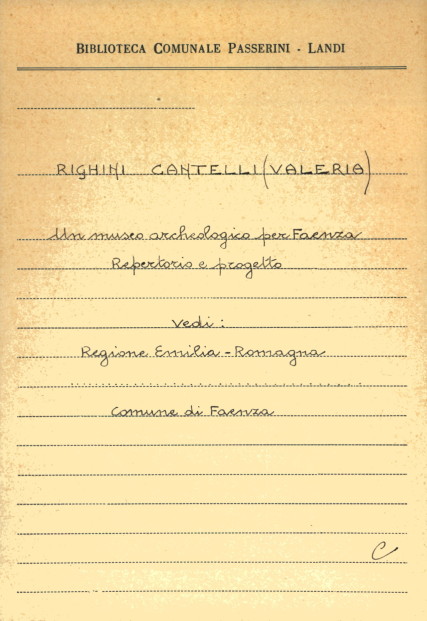 BIBLIOTECA COMUNALE PASSERINI - LANDI
RIGHINI CANTELLI (VALERIA)
Un museo archeologico per Faenza
Repertorio e progetto
vedi :
Regione Emilia - Romagna
Comune di Faenza
C